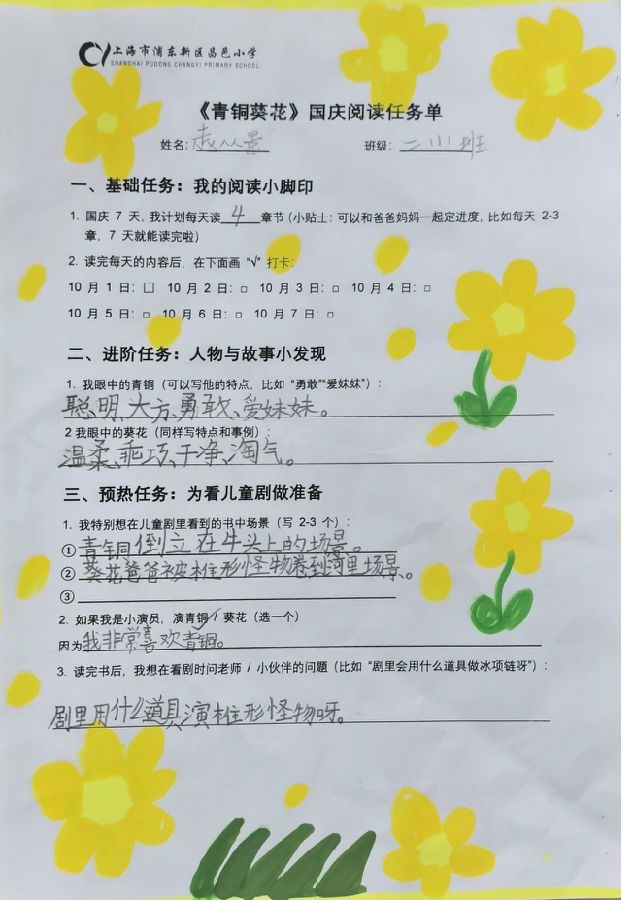 上海市浦东新区昌邑小学
SHANGHAI PUDONG CHANGYI PRIMARY SCHOOL
《青铜葵花》国庆阅读任务单
姓名: 班级: 二班
一、基础任务：我的阅读小脚印
1. 国庆 7 天，我计划每天读 4 章节（小贴士：可以和爸爸妈妈一起定进度，比如每天 2-3
章，7 天就能读完啦）
2. 读完每天的内容后，在下面画 "√" 打卡：
10 月 1 日：□ 10 月 2 日：□ 10 月 3 日：□ 10 月 4 日：□
10 月 5 日：□ 10 月 6 日：□ 10 月 7 日：□
二、进阶任务：人物与故事小发现
1. 我眼中的青铜（可以写他的特点，比如 "勇敢""爱妹妹"）：
聪明、大方、勇敢、爱妹妹。
2 我眼中的葵花（同样写特点和事例）：
温柔、乖巧、干净、淘气。
三、预热任务：为看儿童剧做准备
1. 我特别想在儿童剧里看到的书中场景（写 2-3 个）：
① 青铜倒立在牛头上的场景。
② 葵花爸爸被椎形怪物卷到河里场景、。
③
2. 如果我是小演员，演青铜 / 葵花（选一个） ✓
因为我非常喜欢青铜。
3. 读完书后，我想在看剧时问老师 / 小伙伴的问题（比如 "剧里会用什么道具做冰项链呀"）：
剧里用什么道具演椎形怪物呀。